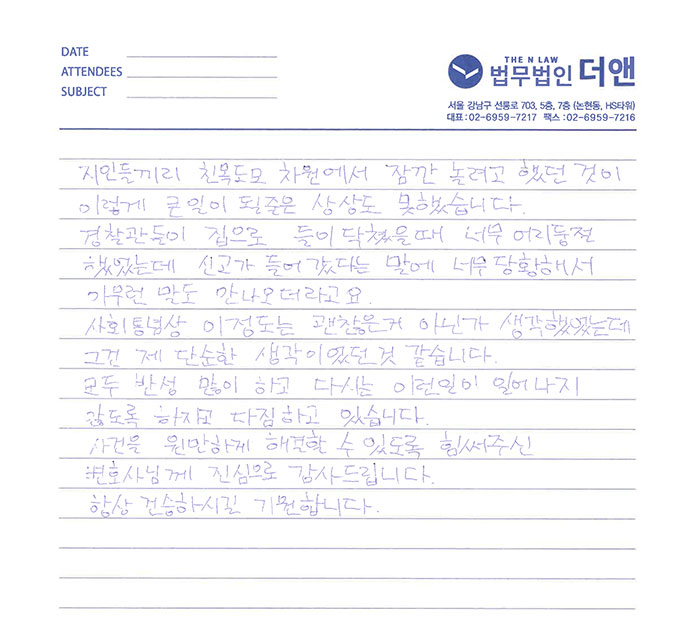 DATE
ATTENDEES
SUBJECT
THE N LAW
법무법인 더앤
서울 강남구 선릉로 703, 5층, 7층 (논현동, HS타워)
대표:02-6959-7217 팩스:02-6959-7216
지인들끼리 친목도모 차원에서 잠깐 놀려고 했던 것이
이렇게 큰일이 될줄은 상상도 못했습니다.
경찰관들이 집으로 들이닥쳤을때 너무 어리둥절
했었는데 신고가 들어갔다는 말에 너무 당황해서
아무런 말도 안나오더라고요.
사회통념상 이정도는 괜찮은거 아닌가 생각했었는데
그건 제 단순한 생각이였던것 같습니다.
모두 반성 많이 하고 다시는 이런일이 일어나지
않도록 하자고 다짐하고 있습니다.
사건을 원만하게 해결할 수 있도록 힘써주신
변호사님께 진심으로 감사드립니다.
항상 건승하시길 기원합니다.